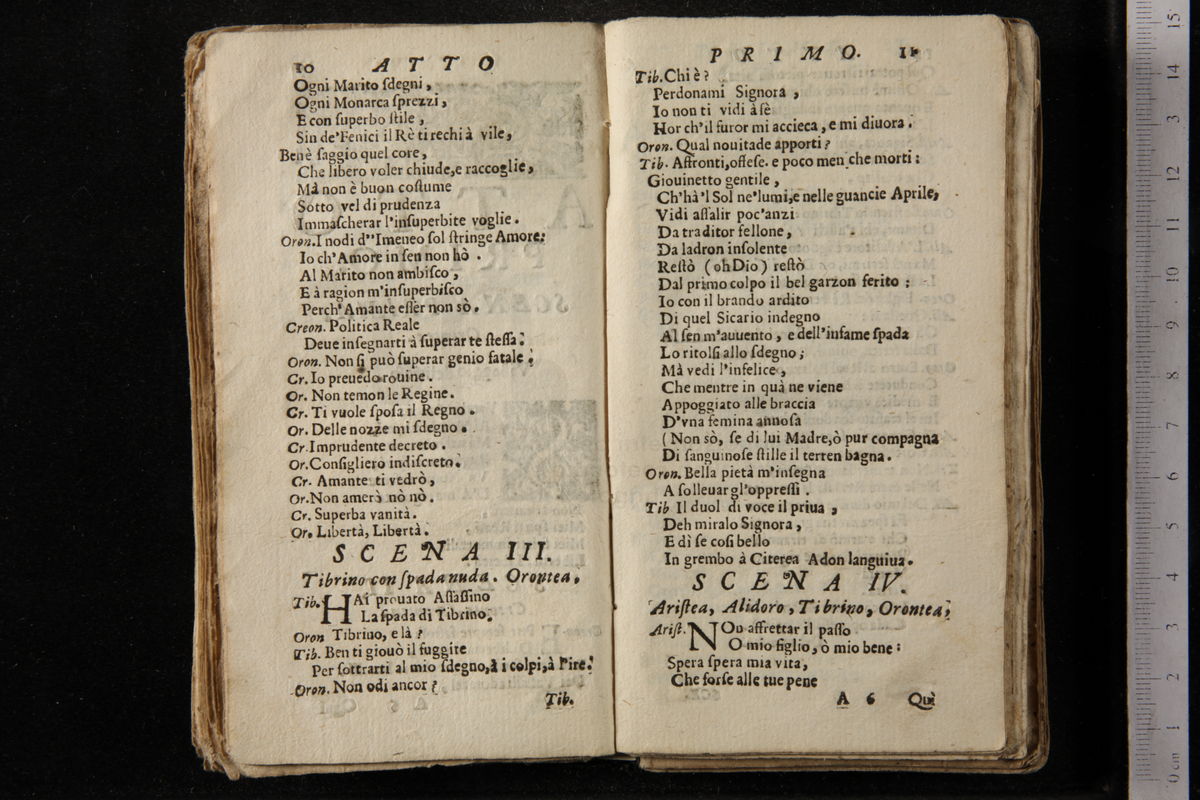 10 ATTO
Ogni Marito ſdegni,
Ogni Monarca ſprezzi,
E con ſuperbo ſtile,
Sin de'Fenici il Rè ti rechi à vile,
Ben è ſaggio quel core,
Che libero voler chiude, e raccoglie,
Mà non è buon coſtume
Sotto vel di prudenza
Immaſcherar l'inſuperbite voglie.
Oron. I nodi d'’Imeneo ſol ſtringe Amore:
Io ch'Amore in ſen non hò.
Al Marito non ambiſco,
E à ragion m'inſuperbiſco
Perch'Amante eſſer non sò.
Creon. Politica Reale
Deue inſegnarti à ſuperar te ſteſſa.
Oron. Non ſi può ſuperar genio fatale.
Cr. Io preuedo rouine.
Or. Non temon le Regine.
Cr. Ti vuole ſpoſa il Regno.
Or. Delle nozze mi ſdegno.
Cr. Imprudente decreto.
Or. Conſigliero indiſcreto.
Cr. Amante ti vedrò,
Or. Non amerò nò nò.
Cr. Superba vanità.
Or. Libertà, Libertà.
SCENA III.
Tibrino con ſpada nuda. Orontea.
Tib. HAi prouato Aſſaſſino
La ſpada di Tibrino.
Oron Tibrino, e là?
Tib. Ben ti giouò il fuggire
Per ſottrarti al mio ſdegno, à i colpi, à l'ire.
Oron. Non odi ancor?
Tib.
PRIMO. 11
Tib. Chi è?
Perdonami Signora,
Io non ti vidi à fè
Hor ch'il furor mi accieca, e mi diuora.
Oron. Qual nouitade apporti?
Tib. Affronti, offeſe. e poco men che morti:
Giouinetto gentile,
Ch'hà'l Sol ne'lumi, e nelle guancie Aprile,
Vidi aſſalir poc'anzi
Da traditor fellone,
Da ladron inſolente
Reſtò (oh Dio) reſtò
Dal primo colpo il bel garzon ferito:
Io con il brando ardito
Di quel Sicario indegno
Al ſen m'auuento, e dell'infame ſpada
Lo ritolſi allo ſdegno;
Mà vedi l'infelice,
Che mentre in quà ne viene
Appoggiato alle braccia
D'vna femina annoſa
(Non sò, ſe di lui Madre, ò pur compagna
Di ſanguinoſe ſtille il terren bagna.
Oron. Bella pietà m'inſegna
A ſolleuar gl'oppreſſi.
Tib Il duol di voce il priua,
Deh miralo Signora,
E dì ſe coſi bello
In grembo à Citerea Adon languiua.
SCENA IV.
Ariſtea, Alidoro, Tibrino, Orontea,
Ariſt. NOn affrettar il paſſo
O mio figlio, ò mio bene:
Spera ſpera mia vita,
Che forſe alle tue pene
A 6 Quì